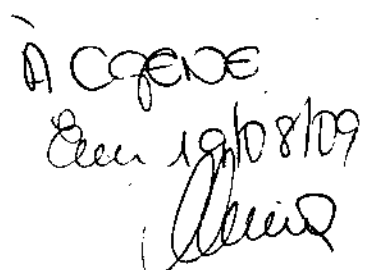 À CGENE
Em 19/08/09